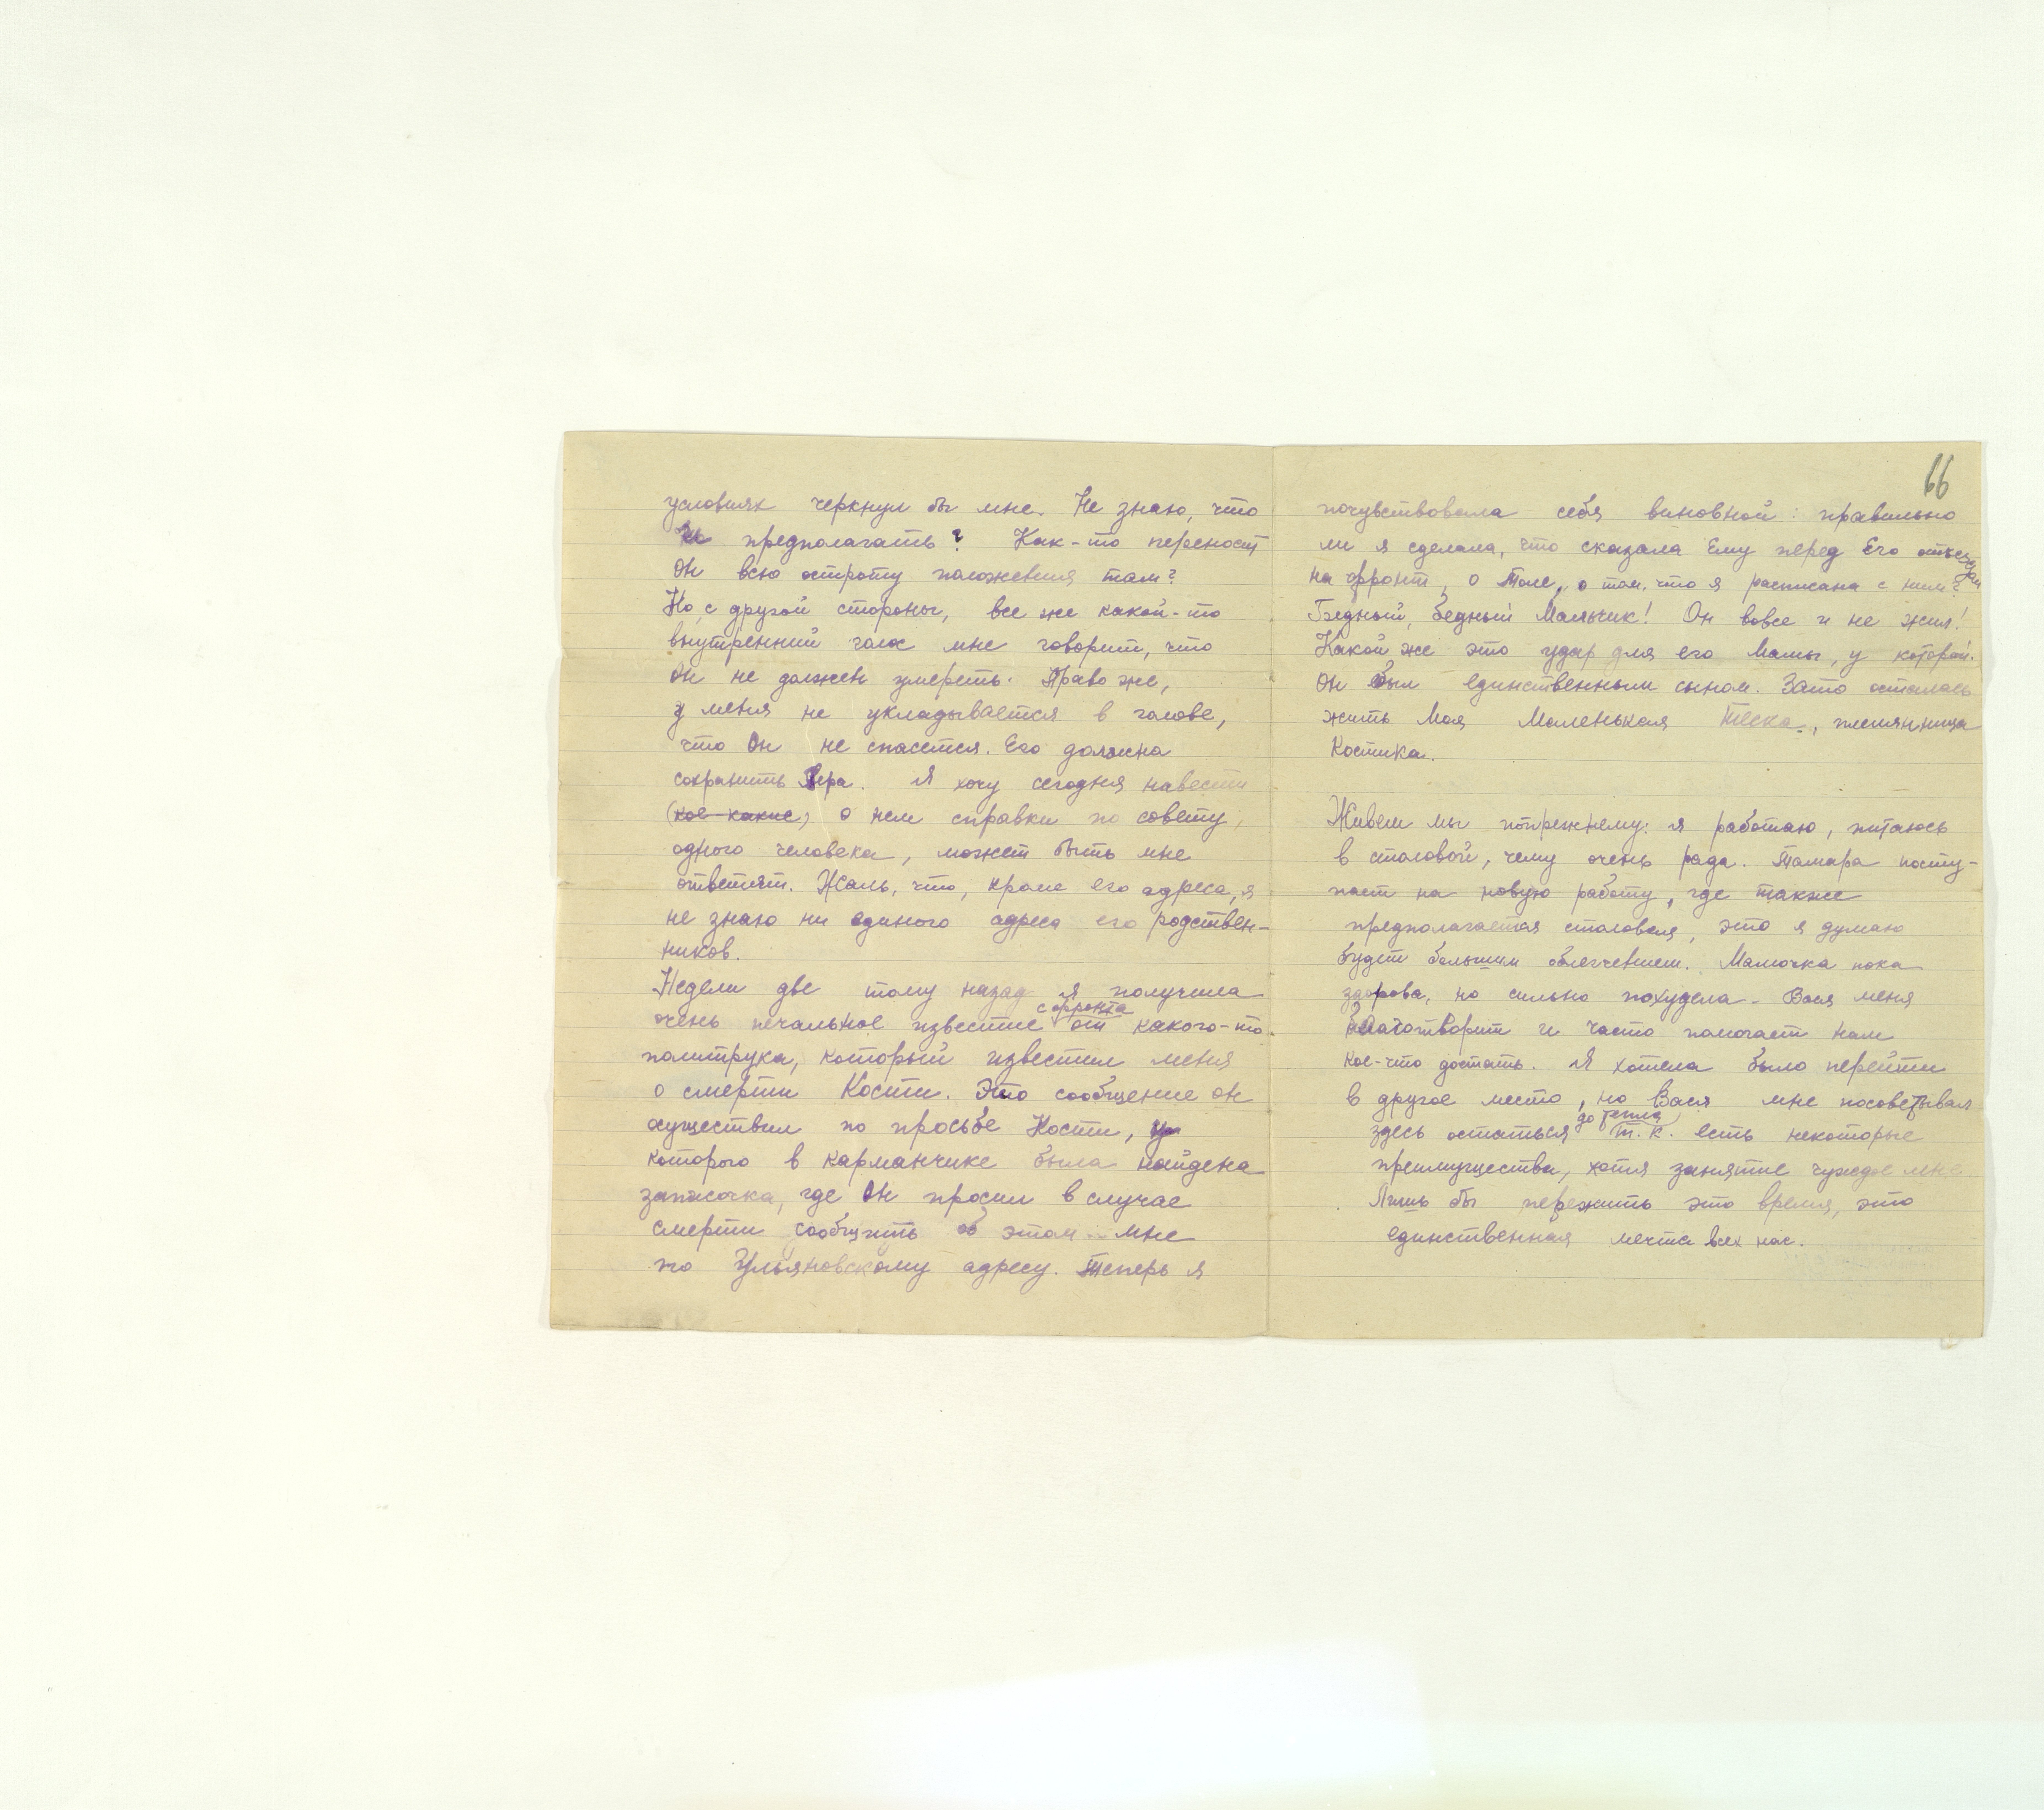 условиях черкнул бы мне. Не знаю, что
и предполагать? Как-то переносит
Он всю остроту положения там?
Но, с другой стороны, все же какой-то
внутренний голос мне говорит, что
Он не должен умереть. Право же,
у меня не укладывается в голове,
что Он не спасется. Его должна
сохранить Вера. Я хочу сегодня навести
(кое-какие) о нем справки по совету
одного человека, может быть мне
ответят. Жаль, что, кроме его адреса, я
не знаю ни единого адреса его родствен-
ников.
Недели две тому назад я получила
с фронта
очень печальное известие от какого-то
политрука, который известил меня
о смерти Кости. Это сообщение он
осуществил по просьбе Кости, у
которого в карманчике была найдена
записочка, где Он просил в случае
смерти сообщить об этом мне
по Ульяновскому адресу. Теперь я
66
почувствовала себя виновной: правильно
ли я сделала, что сказала Ему перед Его отъездом
на фронт, о Толе, о том, что я расписана с ним?
Бедный, бедный Мальчик! Он вовсе и не жил!
Какой же это удар для его Мамы, у которой
Он был единственным сыном. Зато осталась
жить Моя Маленькая Тёска, племянница
Костика.
Живем мы попрежнему: я работаю, питаюсь
в столовой, чему очень рада. Тамара посту-
пает на новую работу, где также
предполагается столовая, это я думаю
будет большим облегчением. Мамочка пока
здорова, но сильно похудела. Вася меня
благотворит и часто помогает нам
кое-что достать. Я хотела было перейти
в другое место, но Вася мне посоветывал
до тепла
здесь остаться т.к. есть некоторые
преимущества, хотя занятие чуждое мне.
Лишь бы пережить это время, это
единственная мечта всех нас.